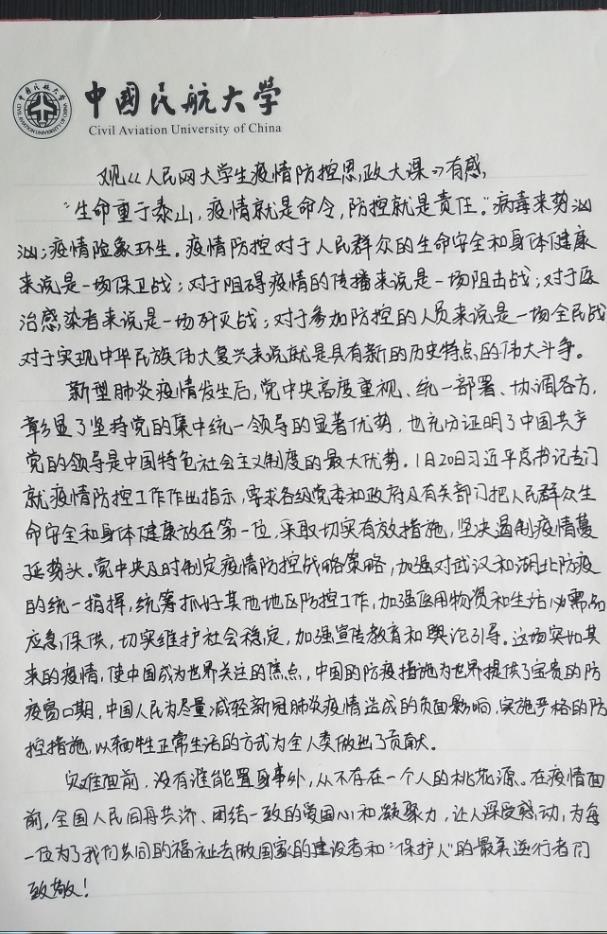 中国民航大学
Civil Aviation University of China
观《人民网大学生疫情防控思政大课》有感
"生命重于泰山,疫情就是命令,防控就是责任。"病毒来势汹
汹;疫情险象环生。疫情防控对于人民群众的生命安全和身体健康
来说是一场保卫战;对于阻碍疫情的传播来说是一场阻击战;对于医
治感染者来说是一场歼灭战;对于参加防控的人员来说是一场全民战
对于实现中华民族伟大复兴来说就是具有新的历史特点的伟大斗争。
新型肺炎疫情发生后,党中央高度重视、统一部署、协调各方,
彰显了坚持党的集中统一领导的显著优势,也充分证明了中国共产
党的领导是中国特色社会主义制度的最大优势。1月20日习近平总书记专门
就疫情防控工作作出指示,要求各级党委和政府及有关部门把人民群众生
命安全和身体健康放在第一位,采取切实有效措施,坚决遏制疫情蔓
延势头。党中央及时制定疫情防控战略策略,加强对武汉和湖北防疫
的统一指挥,统筹抓好其他地区防控工作,加强医用物资和生活必需品
应急保供,切实维护社会稳定,加强宣传教育和舆论引导。这场突如其
来的疫情,使中国成为世界关注的焦点,中国的防疫措施为世界提供了宝贵的防
疫窗口期,中国人民为尽量减轻新冠肺炎疫情造成的负面影响,实施严格的防
控措施,以牺牲正常生活的方式为全人类做出了贡献。
灾难面前,没有谁能置身事外,从不存在一个人的桃花源。在疫情面
前,全国人民同舟共济、团结一致的爱国心和凝聚力,让人深受感动,为每
一位为了我们共同的福祉去做国家的建设者和"保护人"的最美逆行者们
致敬!